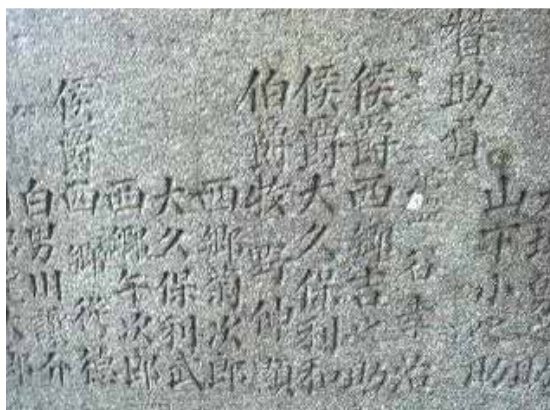 山下小之助
賛助員
谷幸治
侯爵 西郷吉之助
侯爵 大久保利和
伯爵 牧野伸顕
西郷菊次郎
大久保利武
西郷午次郎
侯爵 西郷従徳
白男川譲介